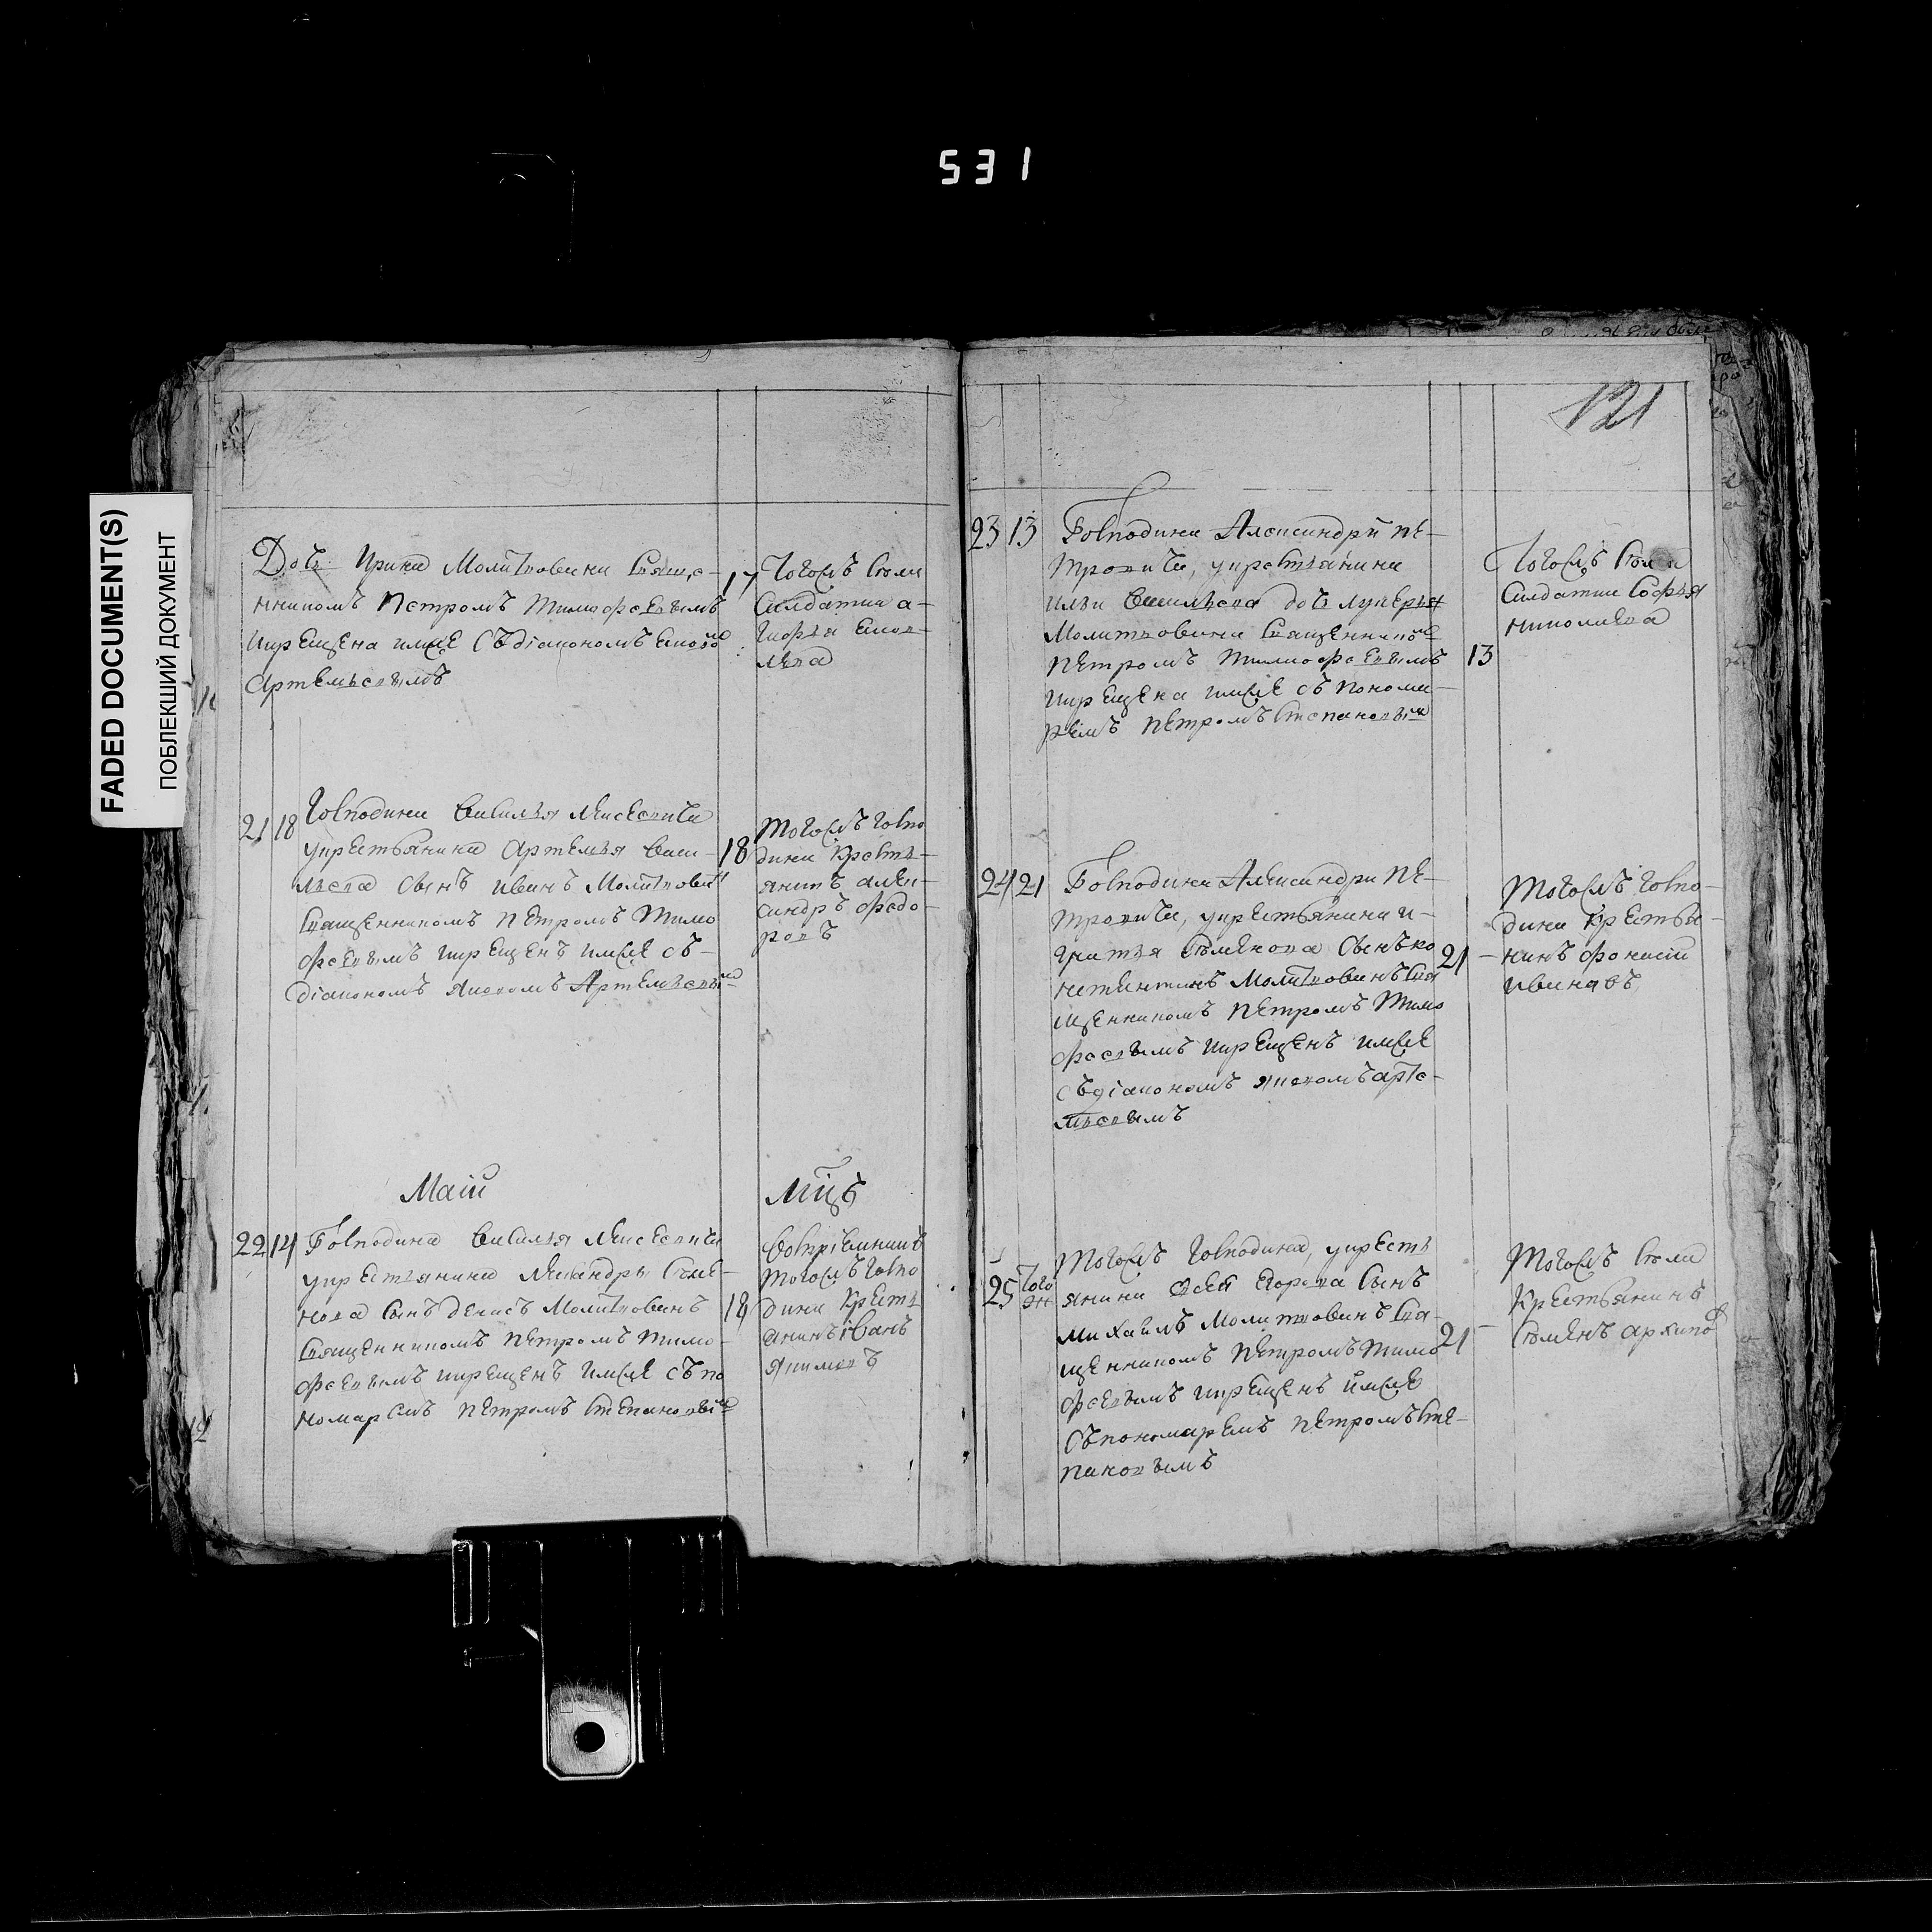 531
FADED DOCUMENT(S)
ПОБЛЕКШИЙ ДОКУМЕНТ
Дочь Ирина Молитвована Свяще-
нникомъ Петромъ Тимофеевымъ
икрещена имже съ діакономъ
Артемьевымъ
17
Тогожъ села
Салдатка а-
гафья
21 18 Господина Василья Алексеевича
укрестьянина Артемья Васи-
льева сынъ иванъ Молитвован
священникомъ Петромъ Тимо
феевымъ икрещенъ имже съ-
діакономъ Яковомъ Артемьевым
18
тогожъ госпо
дина крестъ-
янинъ алек-
сандръ федо-
ровъ
Маій
мцъ
22 14 Господина Василья Алексеевича
укрестьянина Семе-
нова сынъ денисъ Молитвованъ
священникомъ Петромъ тимо-
феевымъ икрещенъ имже съ по
номаремъ Петромъ Степановым
18
воспріемникъ
тогожъ госпо
дина крестъ
янинъ іванъ
Якимовъ
121
23 13 Господина Александра пе-
тровича, укрестьянина
ильи Васильева дочь лукерья
Молитвована Священником
Петромъ Тимофеевымъ
икрещена имже съ понома-
ремъ Петромъ Степановым
13
Тогожъ села
Салдатка Софья
николаева
24 21 Господина Александра Пе-
тровича, укрестьянина и-
гнатья семенова сынъ ко
нстентинъ Молитвованъ свя
щенникомъ Петромъ Тимо
феевымъ икрещенъ имже
съ діакономъ яковомъ арте-
мьевымъ
21
тогожъ госпо-
дина крестья-
нинъ фонасій
ивановъ
25 того
Тогожъ Господина, укресть
янина Егорова сынъ
михайлъ Молитвованъ свя-
щенникомъ Петромъ Тимо
феевымъ икрещенъ имже
съ пономаремъ Петромъ Сте-
пановымъ
21
тогожъ села
крестьянинъ
семенъ архипов